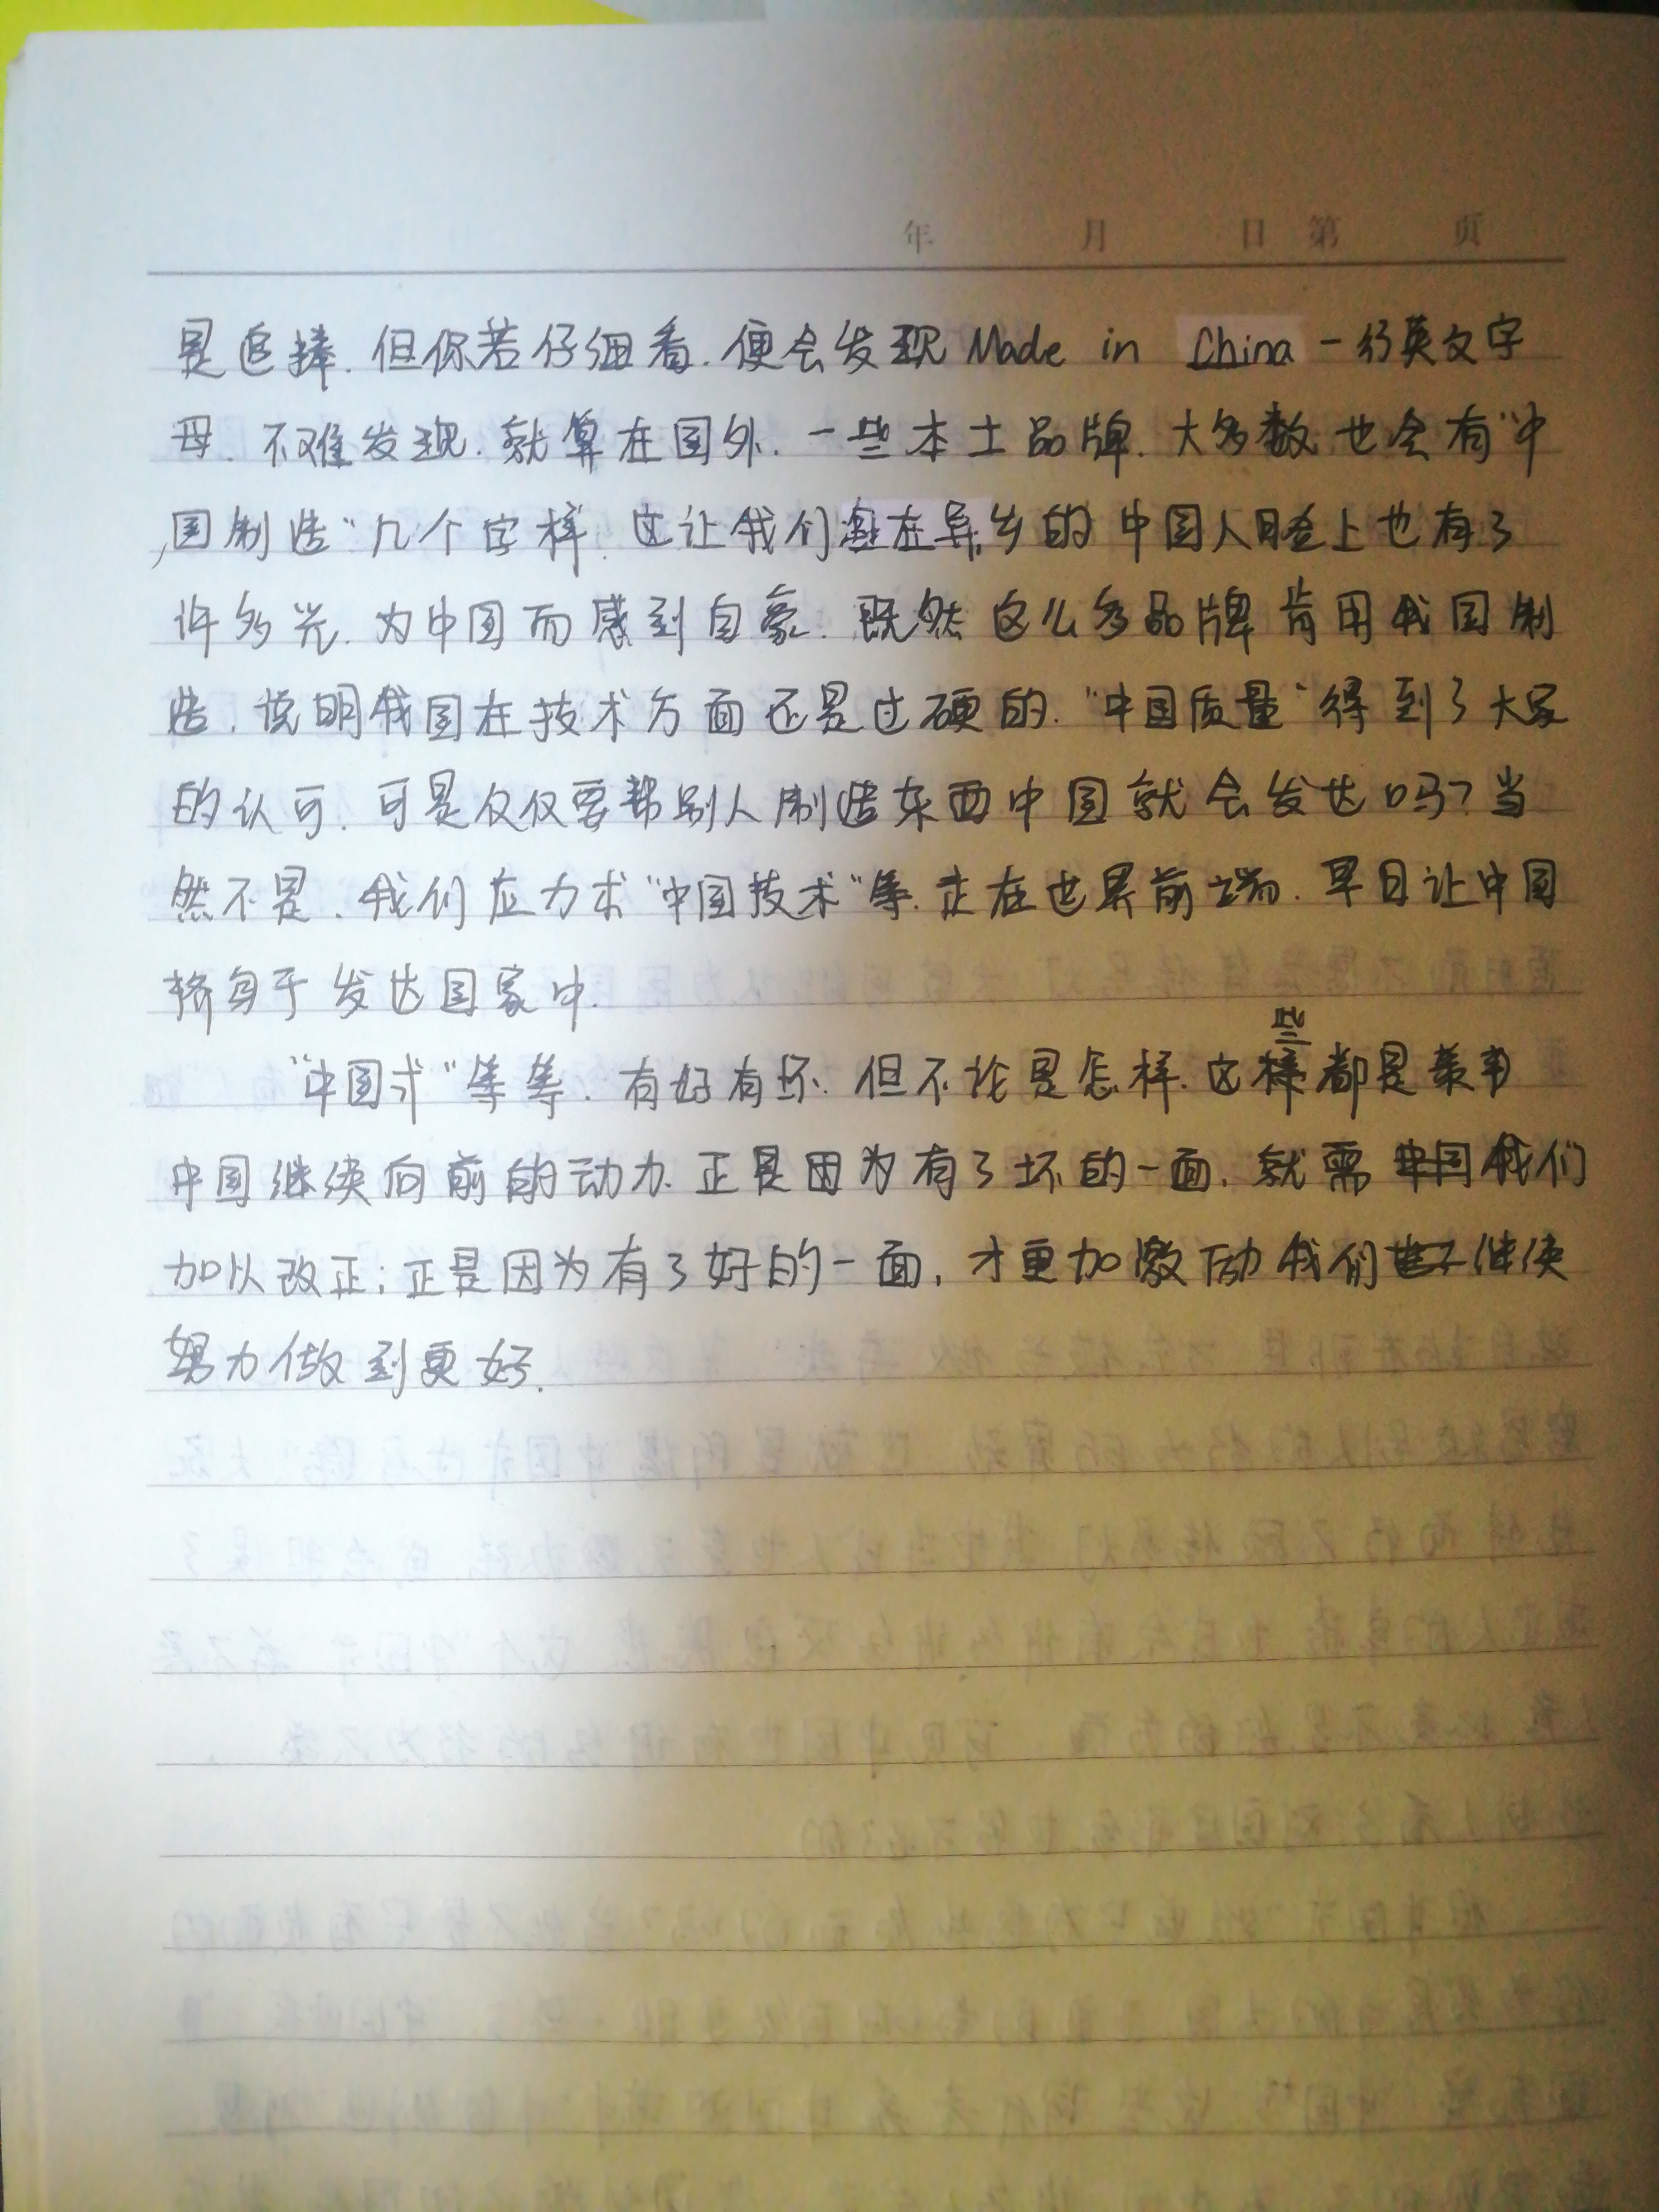 年 月 日 第 页
是追捧.但你若仔细看.便会发现Made in China一行英文字
母.不难发现.就算在国外.一些本土品牌.大多数也会有“中
国制造”几个字样.这让我们遊在异乡的中国人脸上也有了
许多光.为中国而感到自豪.既然这么多品牌肯用我国制
造.说明我国在技术方面还是过硬的.“中国质量”得到了大家
的认可.可是仅仅要帮别人制造东西中国就会发达吗?当
然不是.我们应力求“中国技术”等.走在世界前端.早日让中国
挤身于发达国家中.
“中国式”等等.有好有坏.但不论是怎样.这些都是
中国继续向前的动力.正是因为有了坏的一面.就需我们
加以改正;正是因为有了好的一面.才更加激励我们继续
努力做到更好.